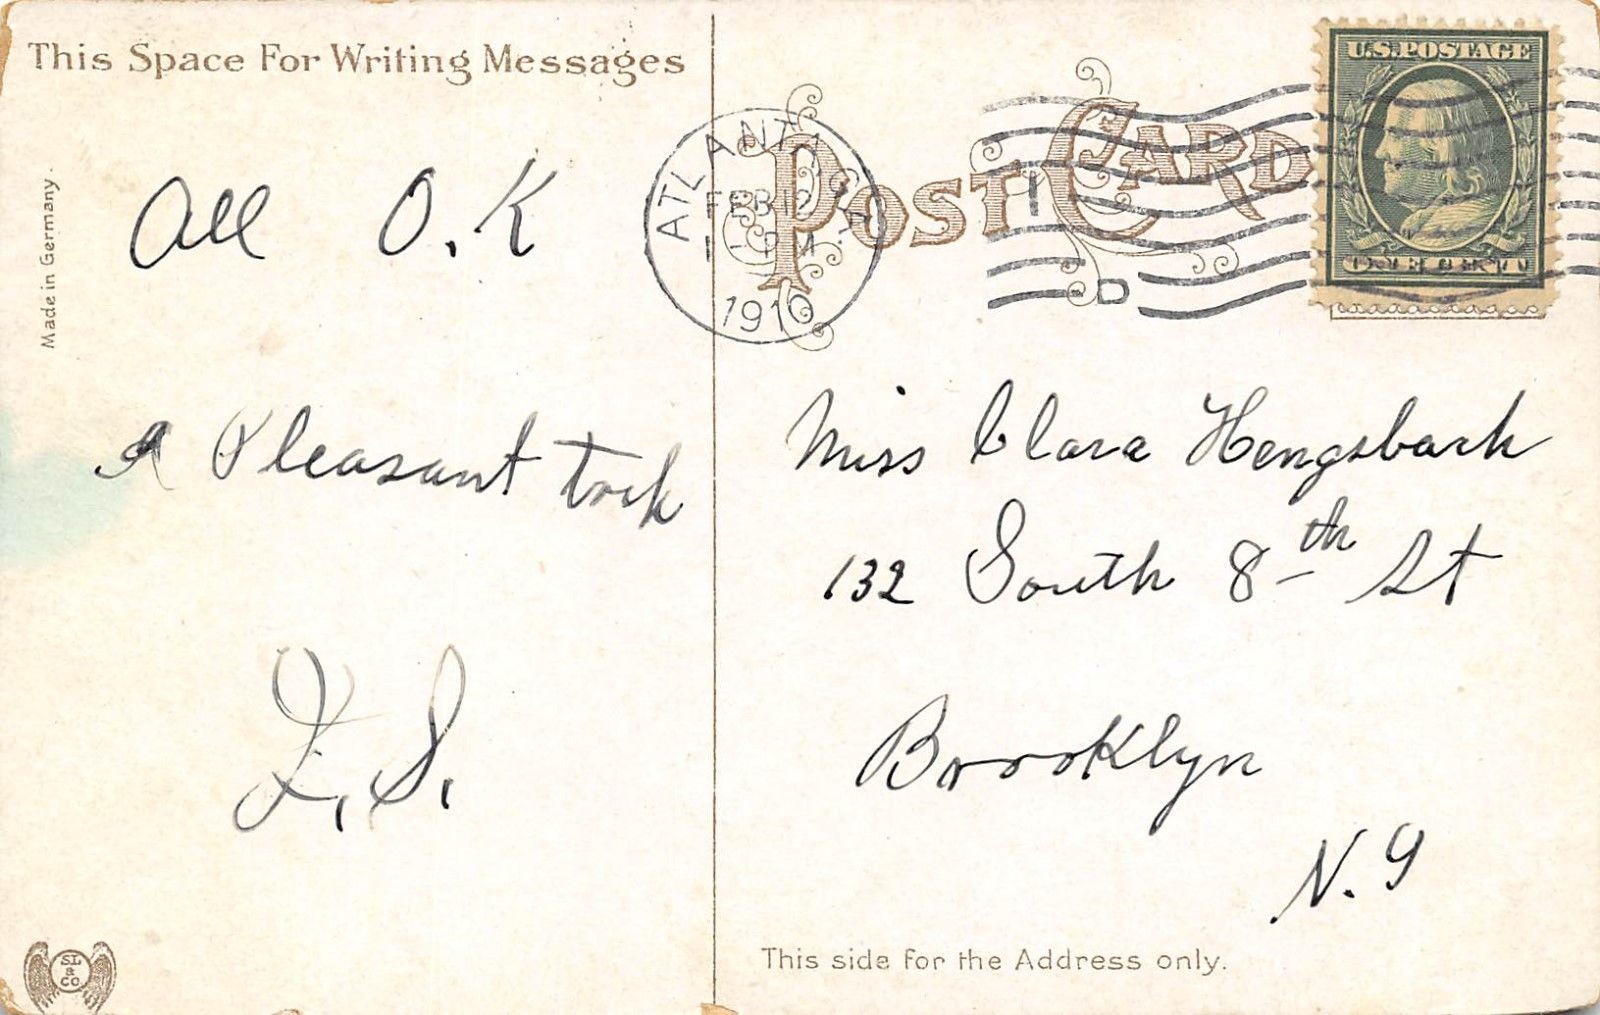 This Space For Writing Messages
Made in Germany.
All O.K
A Pleasant
S.
SL & Co
POST CARD
ATLANTA, GA.
FEB 12
PM
1910
1
D
U.S. POSTAGE
ONE CENT
Miss Clara Hengsbach
132 South 8th St
Brooklyn
N.Y
This side for the Address only.